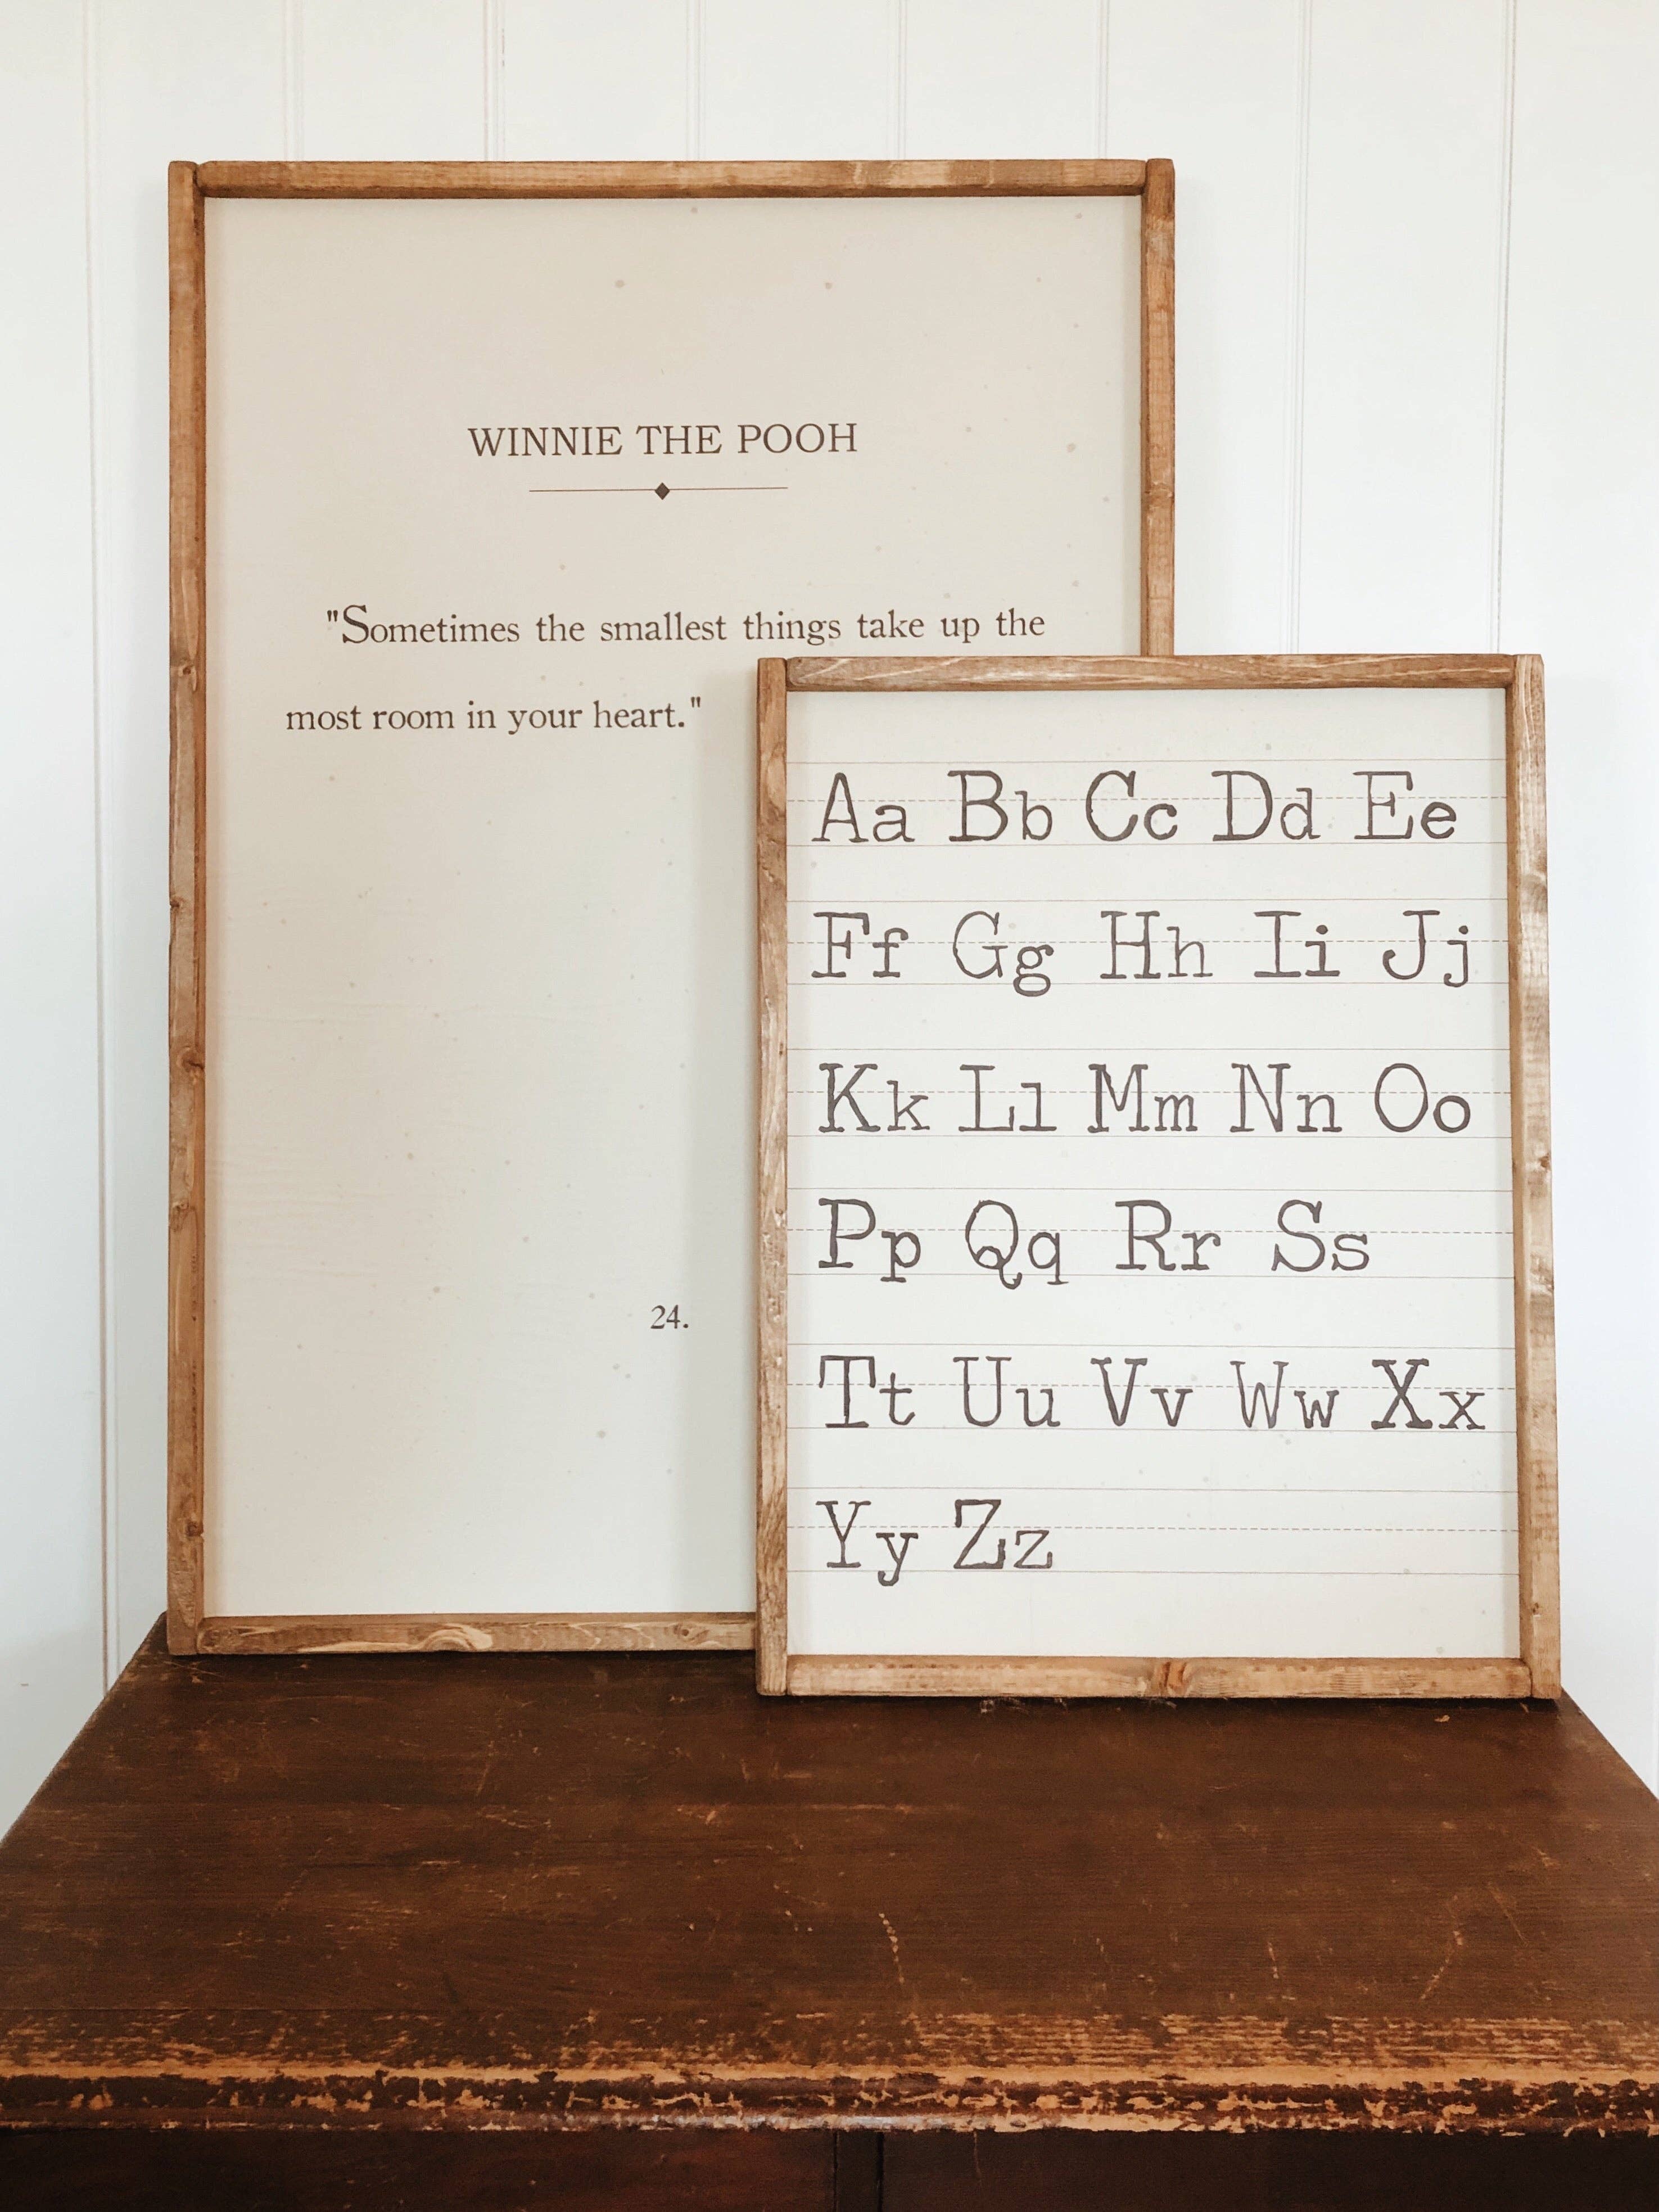 WINNIE THE POOH
"Sometimes the smallest things take up the
most room in your heart."
24.
Aa Bb Cc Dd Ee
Ff Gg Hh Ii Jj
Kk Ll Mm Nn Oo
Pp Qq Rr Ss
Tt Uu Vv Ww Xx
Yy Zz